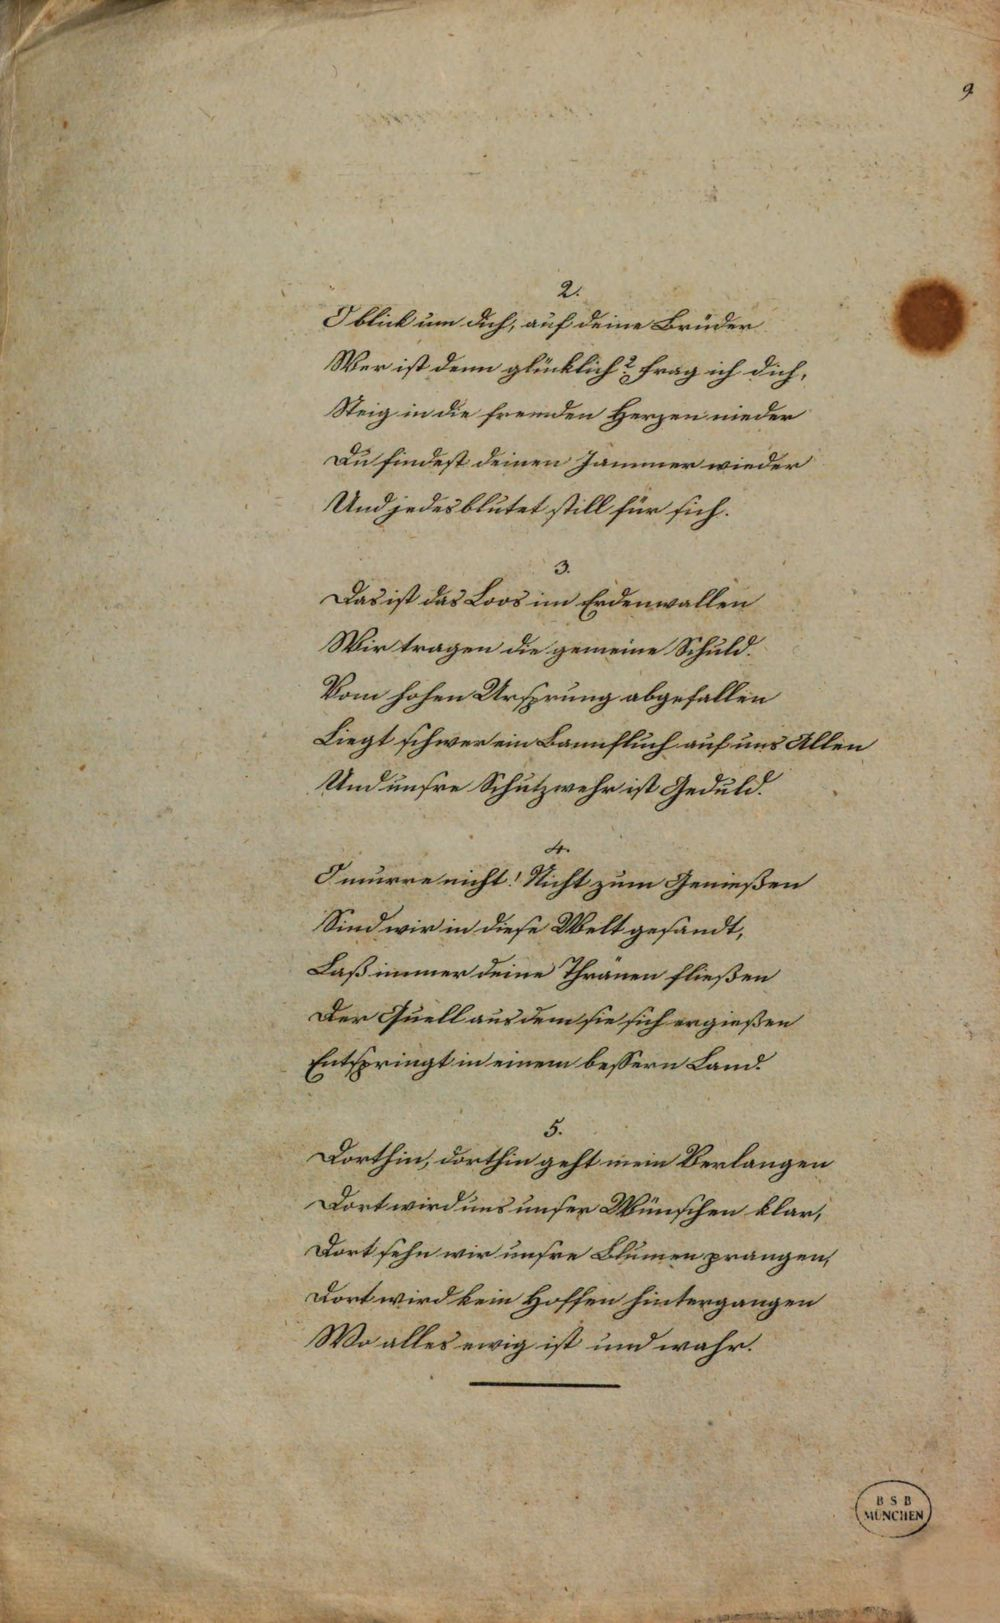 9
2.
O blick um dich, auf deine Brüder
Wer ist denn glücklich? frag ich dich,
Steig in die fremden Herzen nieder
Du findest deinen Jammer wieder
Und jedes blutet still für sich.
3.
Das ist das Loos im Erdenwallen
Wir tragen die gemeine Schuld.
Vom hohen Ursprung abgefallen
Liegt schwer ein Bannfluch auf uns Allen
Und unsre Schutzwehr ist Geduld.
4.
O murre nicht! Nicht zum Genießen
Sind wir in diese Welt gesandt,
Laß immer deine Thränen fließen
Der Quell aus dem sie sich ergießen
Entspringt in einem bessern Land.
5.
Dorthin, dorthin geht mein Verlangen
Dort wird uns unser Wünschen klar,
Dort sehn wir unsre Blumen prangen,
Dort wird kein Hoffen hintergangen
Wo alles ewig ist und wahr.
BSB
MÜNCHEN